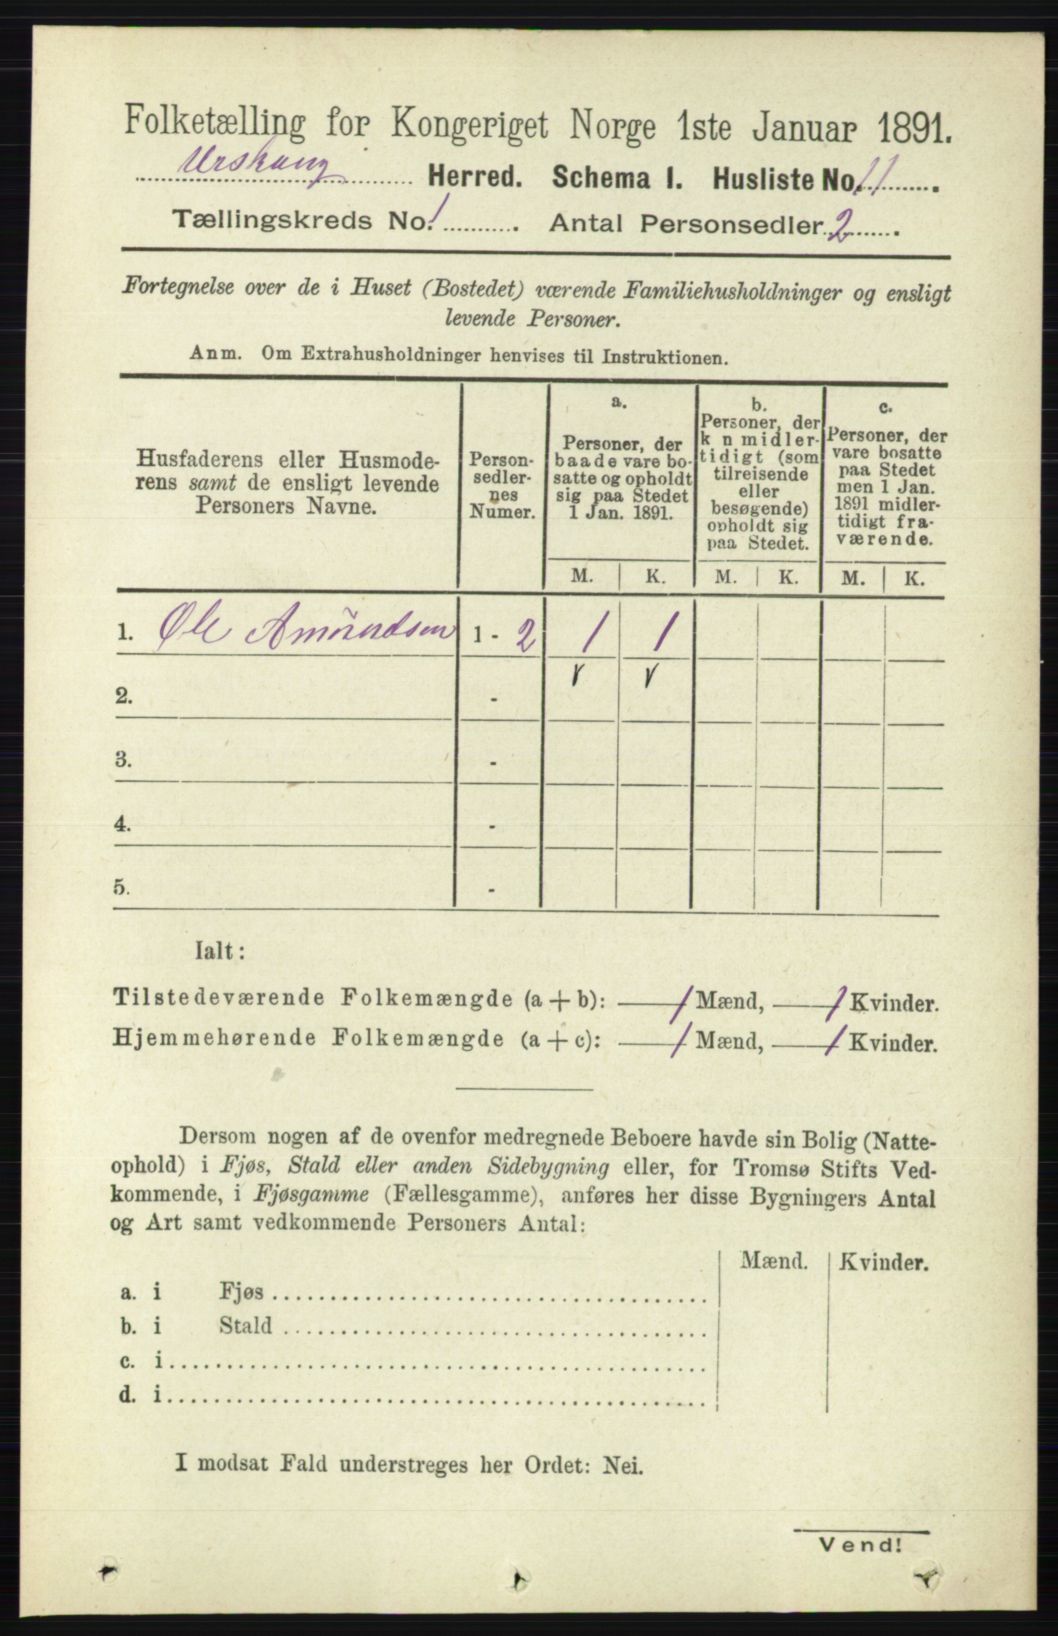 Folketælling for Kongeriget Norge 1ste Januar 1891.
Urskaug Herred. Schema I. Husliste No. 11.
Tællingskreds No. 1. Antal Personsedler 2.
Fortegnelse over de i Huset (Bostedet) værende Familiehusholdninger og ensligt
levende Personer.
Anm. Om Extrahusholdninger henvises til Instruktionen.
Husfaderens eller Husmode-
rens samt de ensligt levende
Personers Navne.
Person-
sedler-
nes
Numer.
a.
Personer, der
baade vare bo-
satte og opholdt
sig paa Stedet
1 Jan. 1891.
b.
Personer, der
k n midler-
tidigt (som
tilreisende
eller
besøgende)
opholdt sig
paa Stedet.
c.
Personer, der
vare bosatte
paa Stedet
men 1 Jan.
1891 midler-
tidigt fra-
værende.
M. K. M. K. M. K.
1. Ole Amundsen 1 - 2 1 1
2. -
3. -
4. -
5. -
Ialt:
Tilstedeværende Folkemængde (a + b): 1 Mænd, 1 Kvinder.
Hjemmehørende Folkemængde (a + c): 1 Mænd, 1 Kvinder.
Dersom nogen af de ovenfor medregnede Beboere havde sin Bolig (Natte-
ophold) i Fjøs, Stald eller anden Sidebygning eller, for Tromsø Stifts Ved-
kommende, i Fjøsgamme (Fællesgamme), anføres her disse Bygningers Antal
og Art samt vedkommende Personers Antal:
Mænd. Kvinder.
a. i Fjøs
b. i Stald
c. i
d. i
I modsat Fald understreges her Ordet: Nei.
Vend!